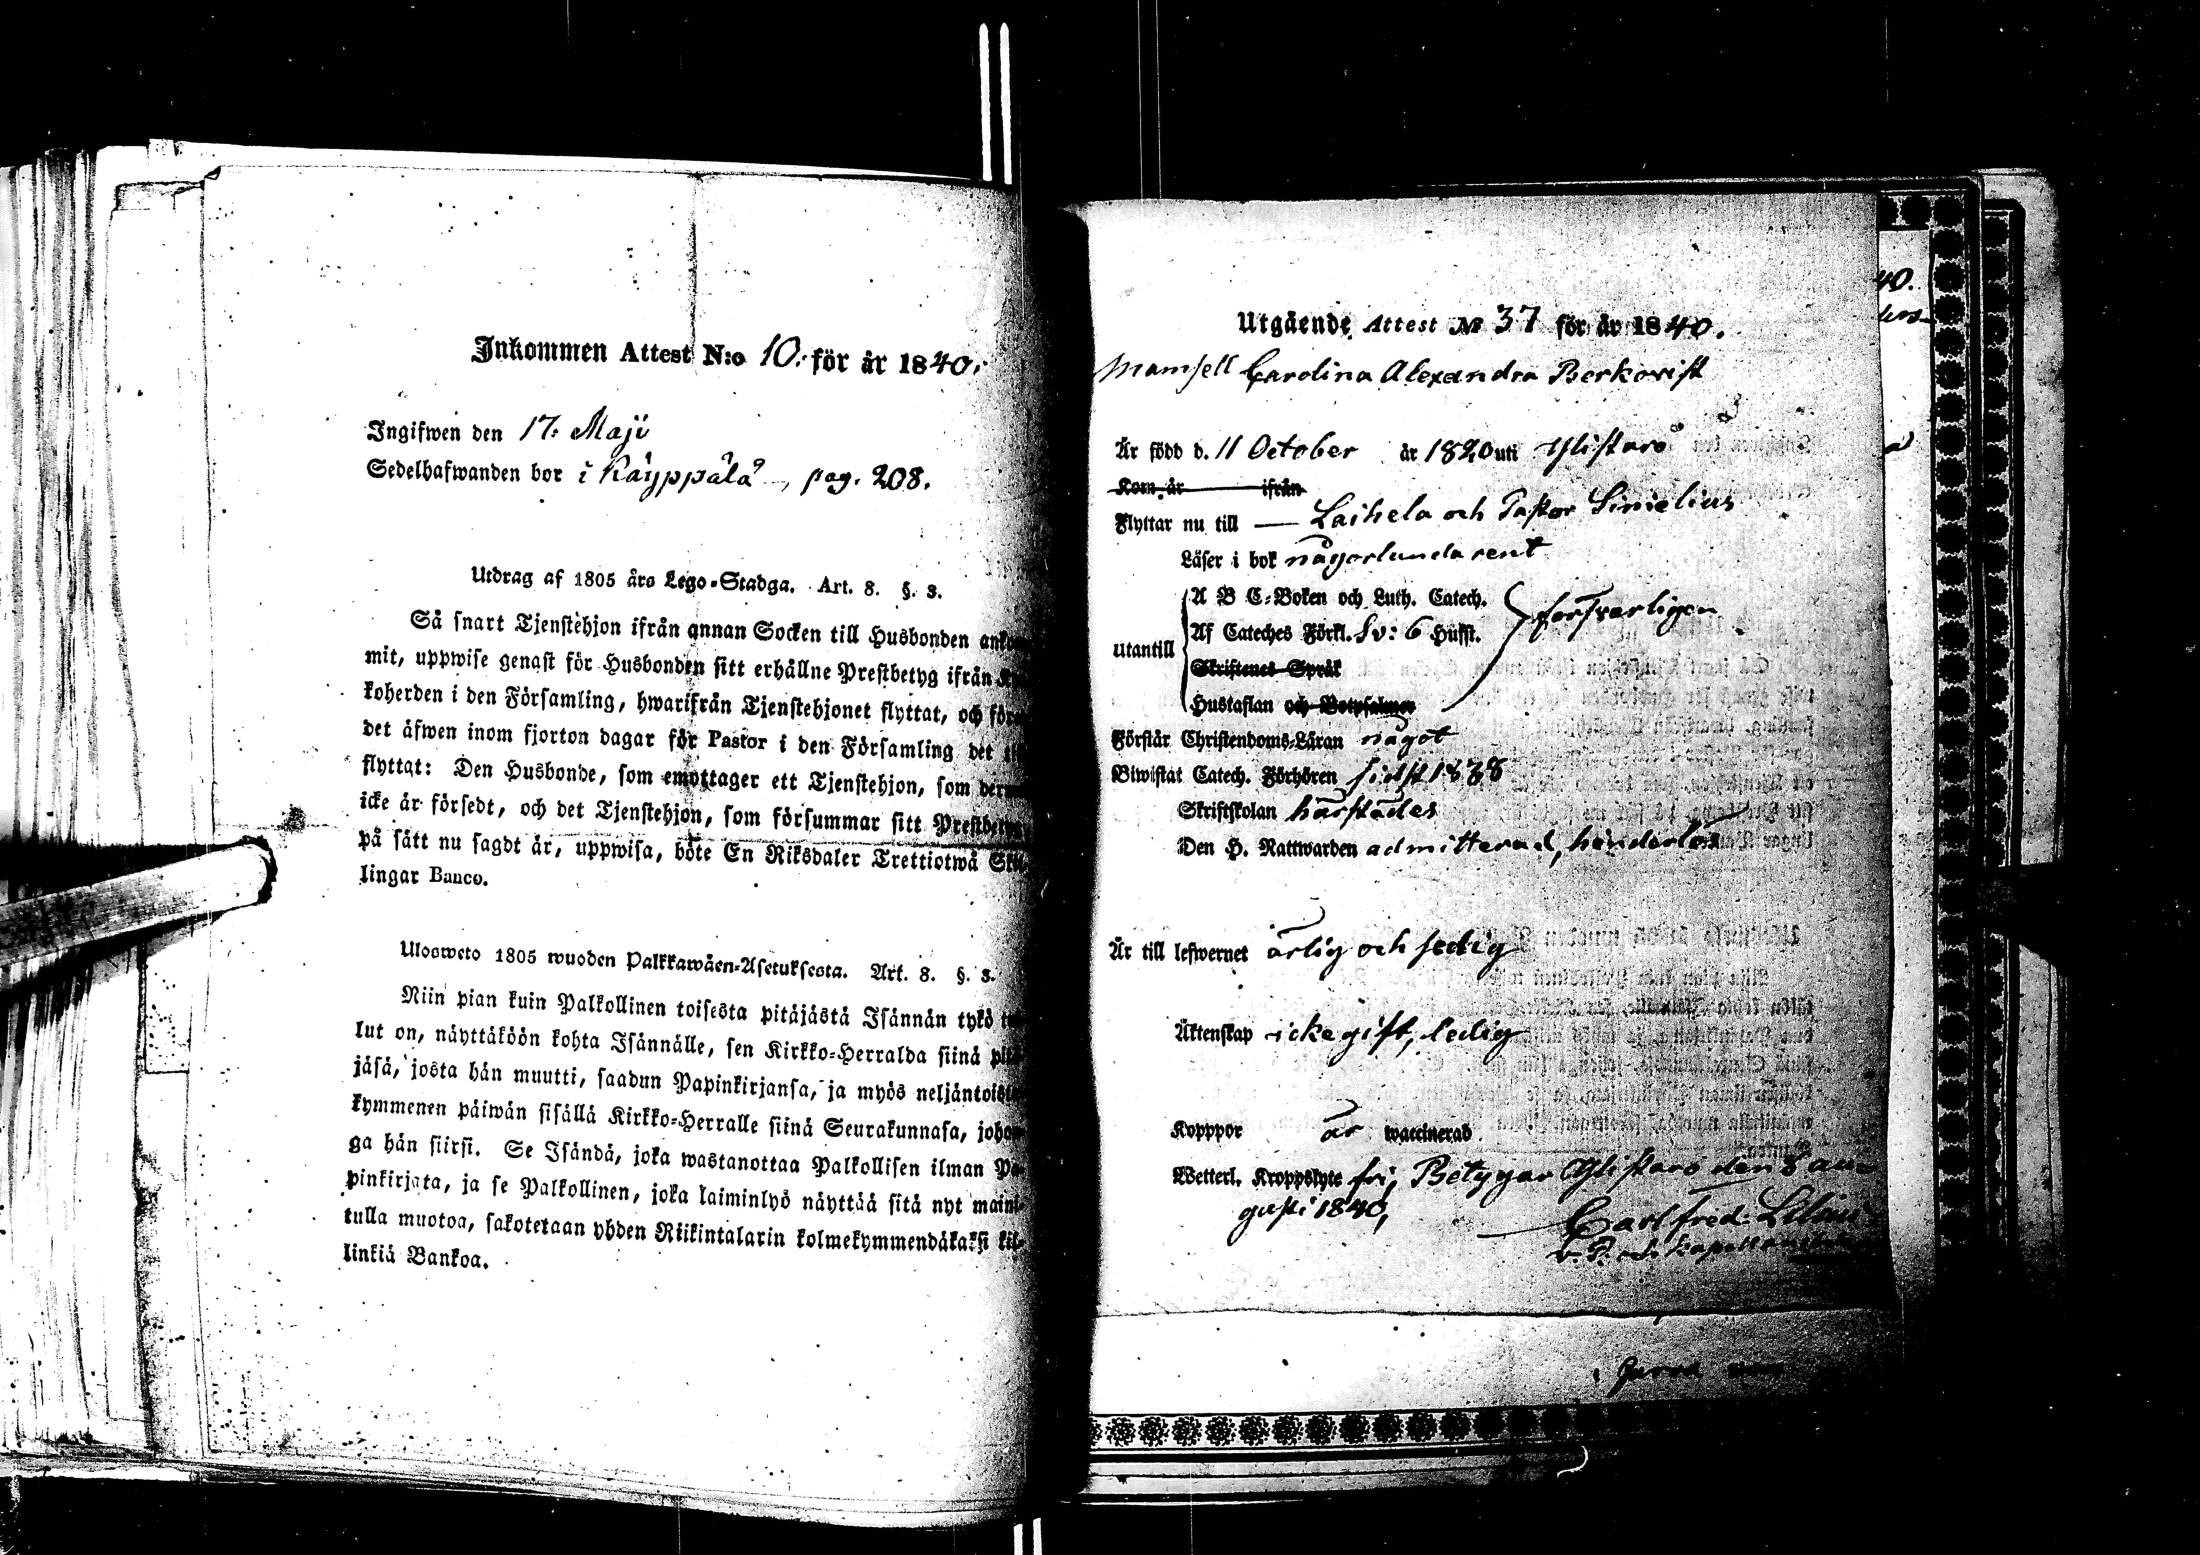 Inkommen Attest N:o 10. för år 1840.
Ingifwen den 17. Maji
Sedelhafwanden bor i Käyppälä, pag. 208.
Utdrag af 1805 års Lego-Stadga. Art. 8. §. 3.
Så snart Tjenstehjon ifrån annan Socken till Husbonden
mit, uppwise genast för Husbonden sitt erhållne Prestbetyg ifrån
koherden i den Församling, hwarifrån Tjenstehjonet flyttat, och
det äfwen inom fjorton dagar för Pastor i den Församling det
flyttat: Den Husbonde, som emottager ett Tjenstehjon, som
icke är försedt, och det Tjenstehjon, som försummar sitt Prestbetyg
på sätt nu sagdt är, uppwisa, böte En Riksdaler Trettiotwå
lingar Banco.
Ulosweto 1805 wuoden Palkkawäen-Asetuksesta. Art. 8. §. 3.
Niin pian kuin Palkollinen toisesta pitäjästä Isännän tykö
lut on, näyttäköön kohta Isännälle, sen Kirkko-Herralda siinä
jäsä, josta hän muutti, saadun Papinkirjansa, ja myös neljäntoista
kymmenen päiwän sisällä Kirkko-Herralle siinä Seurakunnasa,
ga hän siirsi. Se Isändä, joka wastanottaa Palkollisen ilman
pinkirjata, ja se Palkollinen, joka laiminlyö näyttää sitä nyt
tulla muotoa, sakotetaan yhden Riikintalarin kolmekymmendäkaksi
linkiä Bankoa.
Utgående Attest № 37 för år 1840.
Mamsell Carolina Alexandra Berkqvist
Är född d. 11 October år 1820 uti Ylistaro
Kom år ifrån
Flyttar nu till — Laihela och Pastor Simelius
Läser i bok någorlunda rent
utantill
A B C-Boken och Luth. Catech.
Af Cateches Förkl. Sv: 6 Hufst.
Skriftenes Språk
Hustaflan och Botpsalmer
försvarligen
Förstår Christendoms-Läran något
Biwistat Catech. Förhören sidst 1838
Skriftskolan härstädes
Den H. Nattwarden admitterad, hinderlös
Är till lefwernet ärlig och sedig
Äktenskap icke gift, ledig
Kopppor är waccinerad
Wetterl. Kroppslyte fri, Betygar Ylistaro den 8 au-
gusti 1840,
Carl Fred: